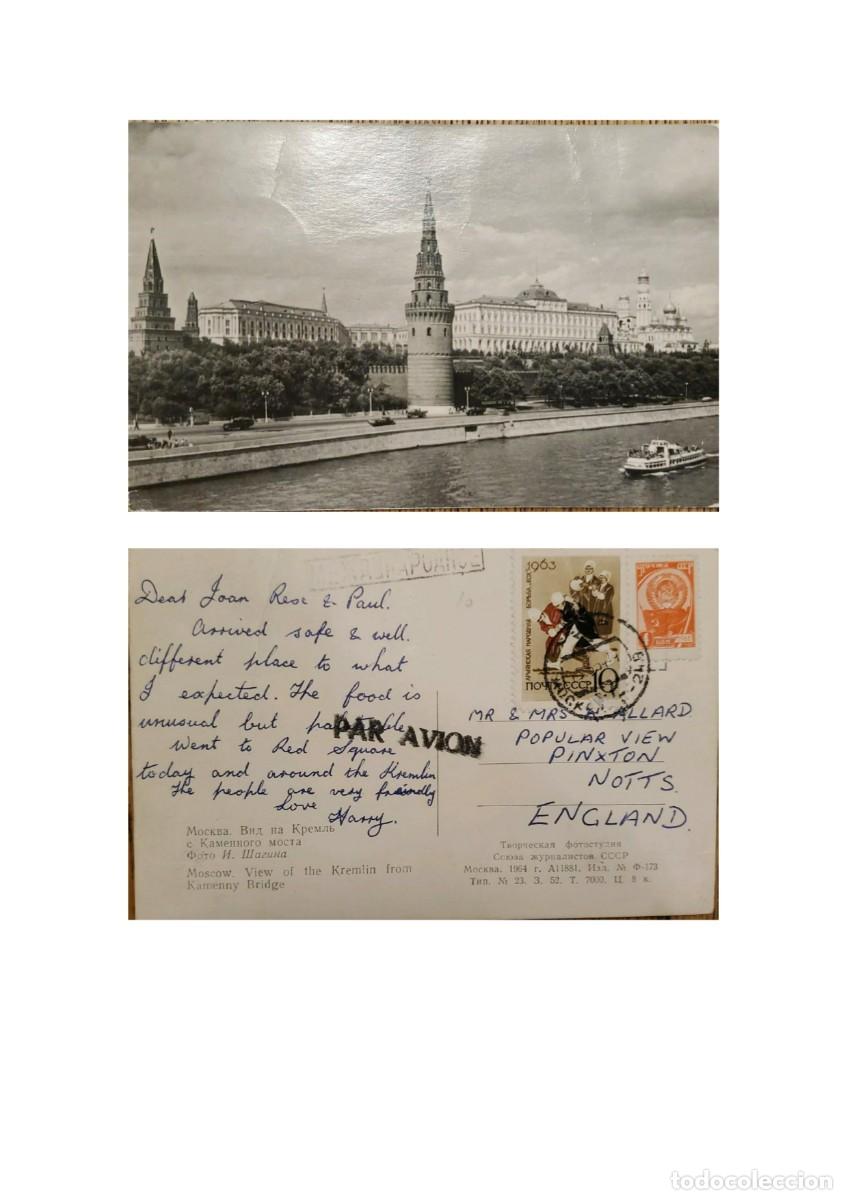 Dear Joan Rose & Paul.
Arrived safe & well.
different place to what
I expected. The food is
unusual but
Went to Red Square
today and around the Kremlin
The people are very friendly
Love
Harry.
PAR AVION
Москва. Вид на Кремль
с Каменного моста
Фото И. Шагина
Moscow. View of the Kremlin from
Kamenny Bridge
1963
ПОЧТА СССР 10
MR & MRS ALLARD
POPULAR VIEW
PINXTON
NOTTS.
ENGLAND.
Творческая фотостудия
Союза журналистов СССР
Москва. 1964 г. А11881. Изд. № Ф-173
Тип. № 23. З. 52. Т. 7000. Ц. 8 к.
todocoleccion